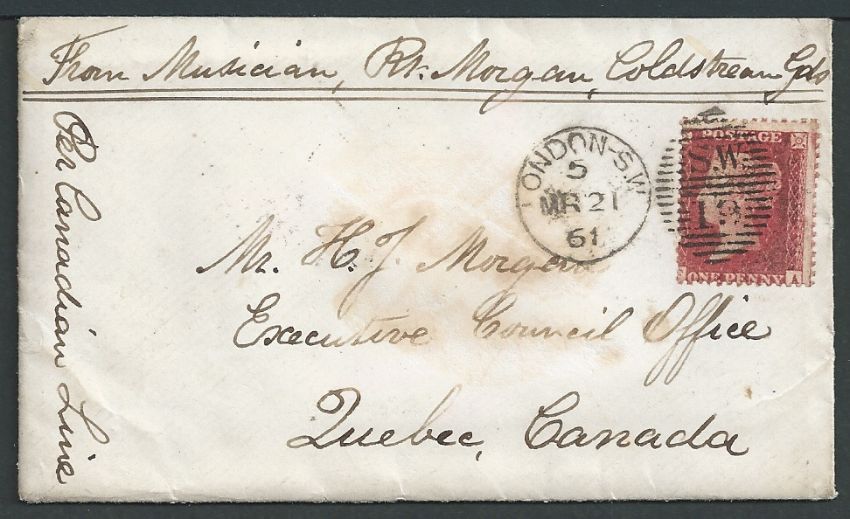 From Musician, Rt. Morgan, Coldstream Gds
Per Canadian Line
LONDON-S.W
5
MR 21
61
POSTAGE
S.W.
19
ONE PENNY
A
Mr. H. J. Morgan
Executive Council Office
Quebec, Canada